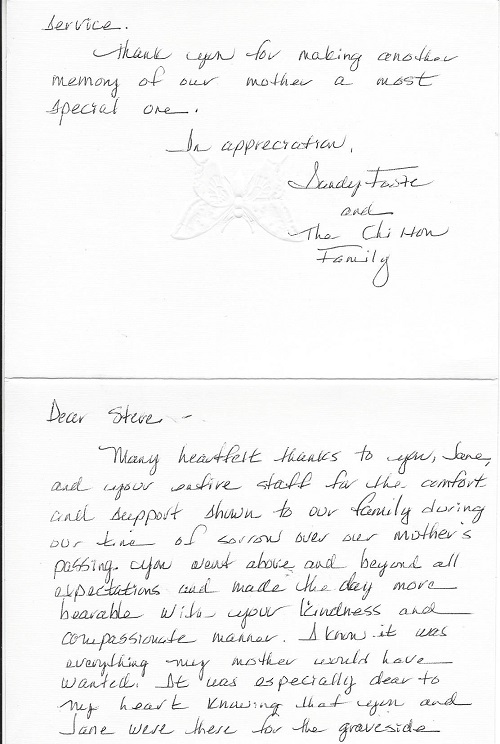 service.
Thank you for making another
memory of our mother a most
special one.
In appreciation,
Sandy
and
The
Family
Dear Steve -
Many heartfelt thanks to you, Jane,
and your entire staff for the comfort
and support shown to our family during
our time of sorrow over our mother's
passing. You went above and beyond all
expectations and made the day more
bearable with your kindness and
compassionate manner. I know it was
everything my mother would have
wanted. It was especially dear to
my heart knowing that you and
Jane were there for the graveside